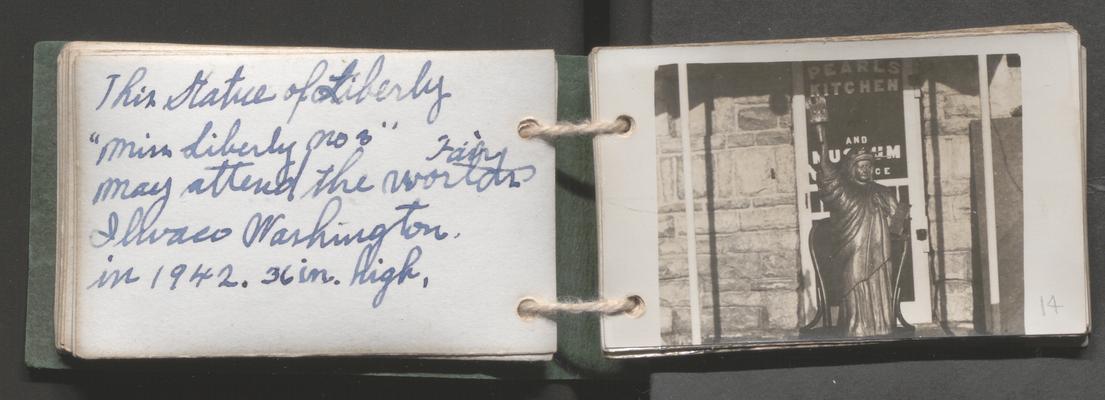 This Statue of Liberty
"Miss Liberty no 3"
Fair
may attend the worlds
Ilwaco Washington.
in 1942. 36in. high.
PEARLS
KITCHEN
AND
MUSEUM
14